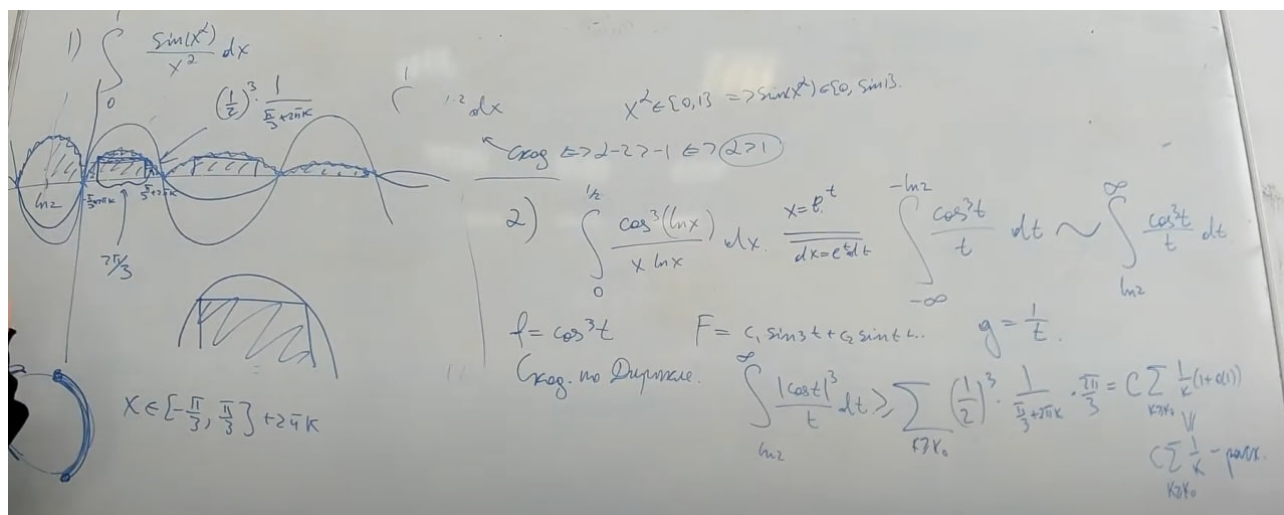 1) ∫₀¹ sin(x^α)/x² dx
(1/2)³ · 1/(π/3+2πk)
x^α ∈ [0,1] => sin(x^α) ∈ [0, sin1].
∫¹ dx
сход <=> α-2>-1 <=> α>1
ln2
-π/3+2πk
π/3+2πk
2π/3
x ∈ [-π/3, π/3] + 2πk
2) ∫₀^{1/2} cos³(lnx)/(x lnx) dx
x=e^t
dx=e^t dt
∫_{-∞}^{-ln2} cos³t/t dt ~ ∫_{ln2}^{∞} cos³t/t dt
f = cos³t F = c₁ sin3t + c₂ sint t.. g = 1/t.
Сход. по Дирихле.
∫_{ln2}^{∞} |cost|³/t dt ≥ Σ_{k≥k₀} (1/2)³ · 1/(π/3+2πk) · 2π/3 = C Σ_{k≥k₀} 1/k (1+o(1))
C Σ_{k≥k₀} 1/k - расх.